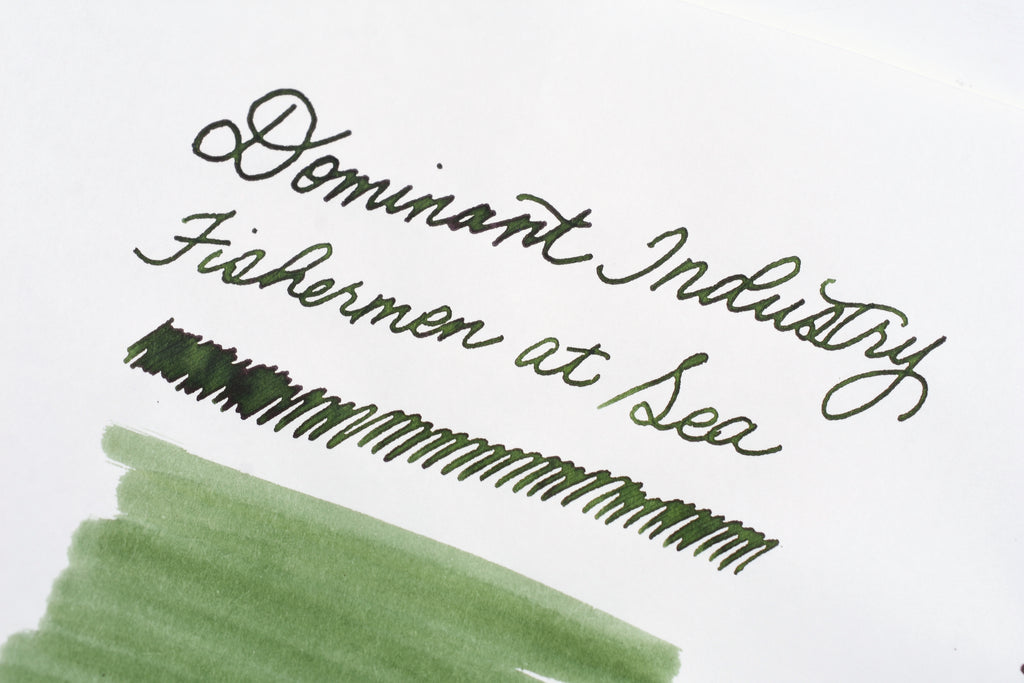 Dominant Industry
Fishermen at Sea